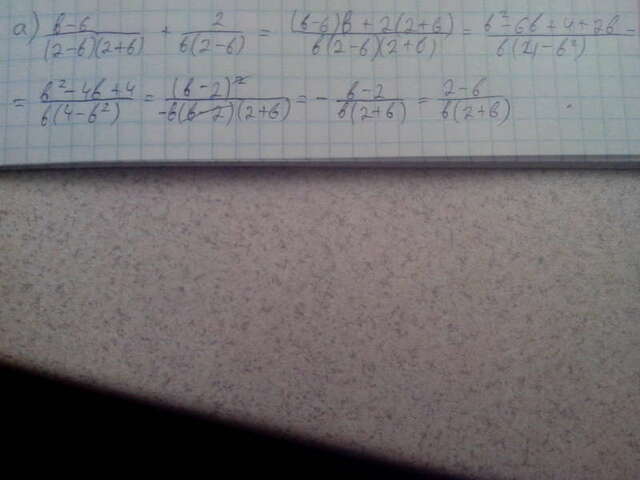 а) b-6/(2-b)(2+b) + 2/b(2-b) = (b-6)b + 2(2+b)/b(2-b)(2+b) = b²-6b+4+2b/b(4-b²) =
= b²-4b+4/b(4-b²) = (b-2)²/-b(b-2)(2+b) = - b-2/b(2+b) = 2-b/b(2+b) .